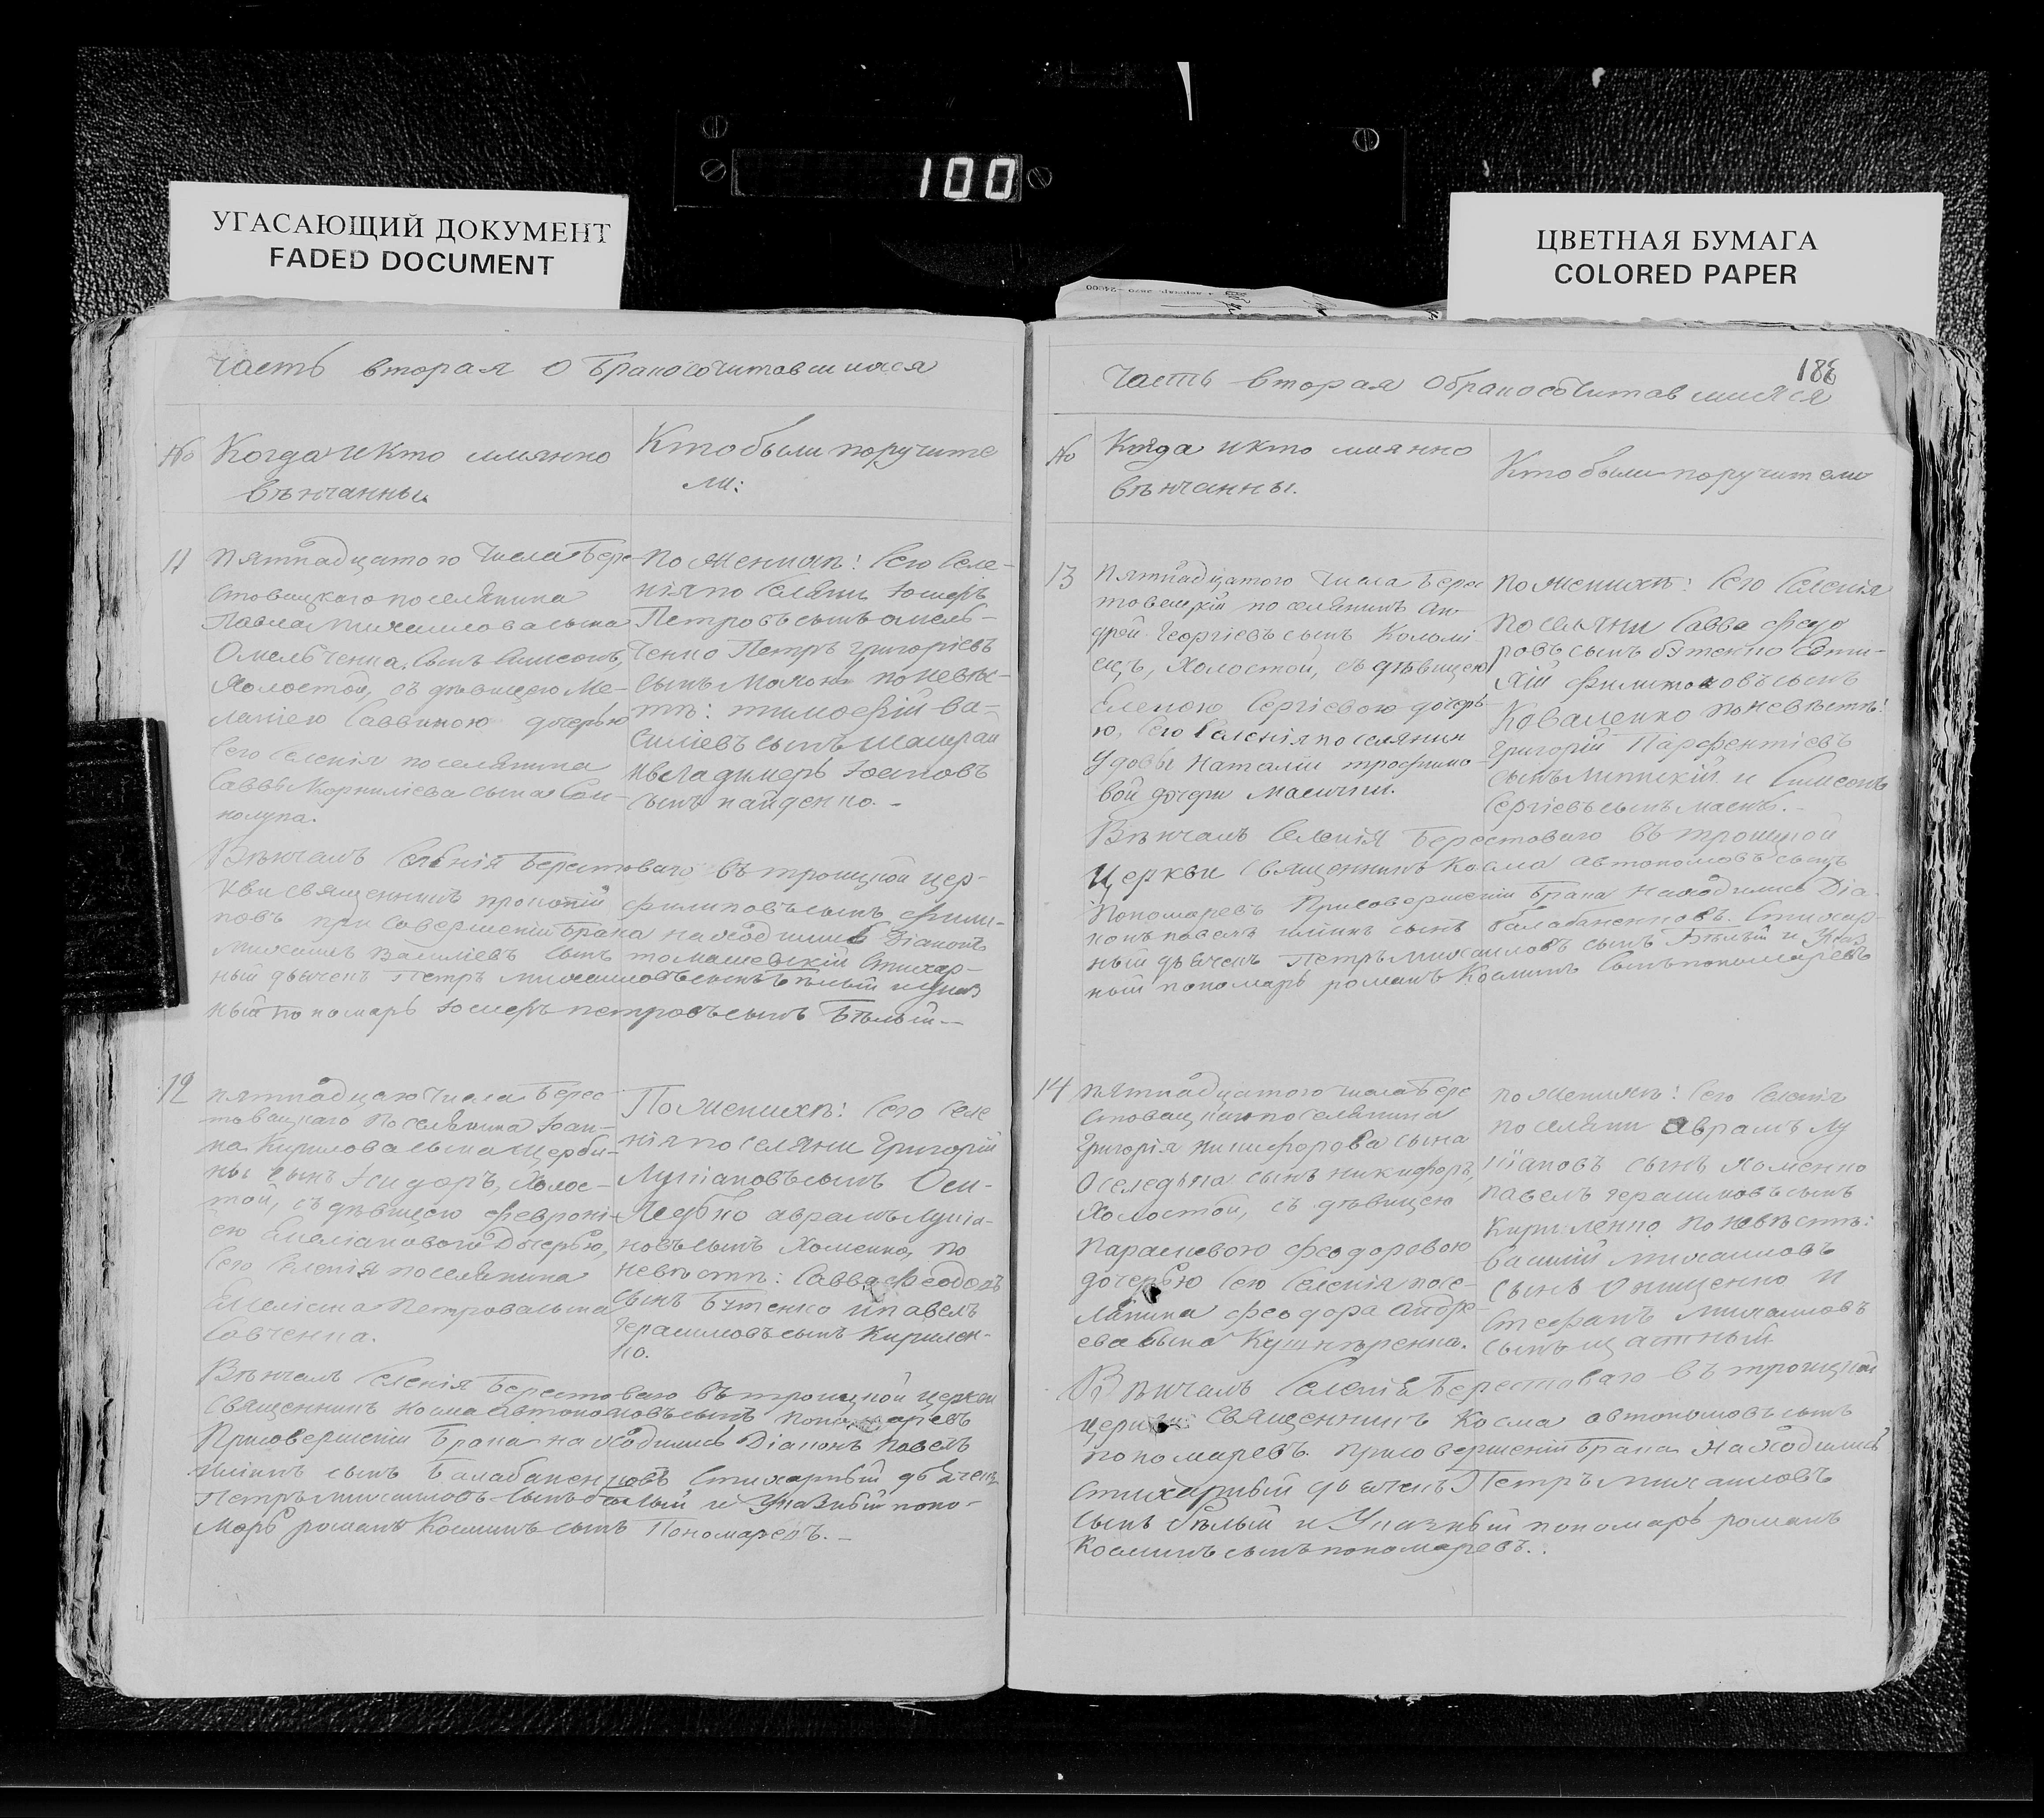 100
УГАСАЮЩИЙ ДОКУМЕНТ
FADED DOCUMENT
ЦВЕТНАЯ БУМАГА
COLORED PAPER
часть вторая о бракосочитавшихся
№ Когда и кто имянно
вѣнчанны.
Кто были поручите
ли:
11 пятнадцатого числа Бере
стовацкаго поселянина
Павла Михаилова сына
Омельченка, сынъ Симеонъ,
холостой, съ дѣвицею Ме-
ланіею Саввиною дочерью
сего селенія поселянина
Саввы Корнилiева сына
по женихѣ: сего селе-
нія поселяни Іосифъ
Петровъ сынъ омель-
ченко Петръ григоріевъ
сынъ поневѣс-
тѣ: тимофей ва-
силіевъ сынъ
и владимеръ
сынъ найденко.
Вѣнчалъ селенія Берестоваго въ троицкой цер-
кви священникъ прокопій филиповъ сынъ фили-
повъ при совершеніи брака находились Діаконъ
Михаилъ Василіевъ сынъ томашевскій стихар-
ный дьячекъ Петръ михаиловъ сынъ Бѣлый и указ
ный пономарь Іосифъ петровъ сынъ Бѣлый.
12 пятнадцаго числа Берес
товацкаго поселянина Іоан-
на Кирилова сына щерби-
ны сынъ Исидоръ, холос-
той, съ дѣвицею феврони-
ею Емеліановою дочерью,
сего селенія поселянина
Емеліана Петрова сына
Савченка.
По женихѣ: сего селе
нія поселяни Григорій
Лукіановъ сынъ
аврамъ лукіа-
новъ сынъ Хоменко, по
невѣстѣ: Савва феодоровъ
сынъ Бутенко и павелъ
герасимовъ сынъ Кирилен-
ко.
Вѣнчалъ селенія Берестоваго въ троицкой церкви
священникъ Косма автономовъ сынъ пономаревъ
При совершеніи брака находились Діаконъ павелъ
сынъ Балабаненковъ стихарный дьячекъ
Петръ михаиловъ сынъ бѣлый и указный поно-
марь романъ Косминъ сынъ Пономаревъ.
186
Часть вторая о бракосочитавшихся
№ Когда и кто имянно
вѣнчанны.
Кто были поручители
13 пятнадцатого числа Берес
товецкій поселянинъ Ан
дрей Георгіевъ сынъ Коломі
ецъ, холостой, съ дѣвицею
Еленою Сергіевою дочерь-
ю, сего селенія поселянки
удовы Наталіи трофимо
вой дочери
по женихѣ: сего селенія
поселяни Савва федо
ровъ сынъ бутенко
сынъ
Коваленко поневѣстѣ:
григорій Парфентіевъ
сынъ и Симеонъ
Сергіевъ сынъ
Вѣнчалъ селенія Берестоваго въ троицкой
Церкви священникъ Косма автономовъ сынъ
Пономаревъ При совершеніи брака находились Діа-
конъ павелъ сынъ балабаненковъ. Стихар-
ный дьячекъ Петръ михаиловъ сынъ Бѣлый и указ
ный пономарь романъ Косминъ сынъ пономаревъ
14 пятнадцатого числа Бере
стовацкаго поселянина
григорія никифорова сына
Оселедька сынъ никифоръ,
холостой, съ дѣвицею
Параскевою феодоровою
дочерью сего селенія посе-
лянина феодора андре-
ева сына Кушнѣренка.
по женихѣ: сего селенія
поселяни аврамъ лу
кіановъ сынъ хоменко
павелъ герасимовъ сынъ
Кириленко поневѣстѣ:
Василій михаиловъ
сынъ онищенко и
стефанъ михаиловъ
сынъ
Вѣнчалъ селенія Берестоваго въ троицкой
церкви: священникъ Косма автономовъ сынъ
пономаревъ. при совершеніи брака находились
стихарный дьячекъ Петръ михаиловъ
сынъ бѣлый и Указный пономарь романъ
Косминъ сынъ пономаревъ.